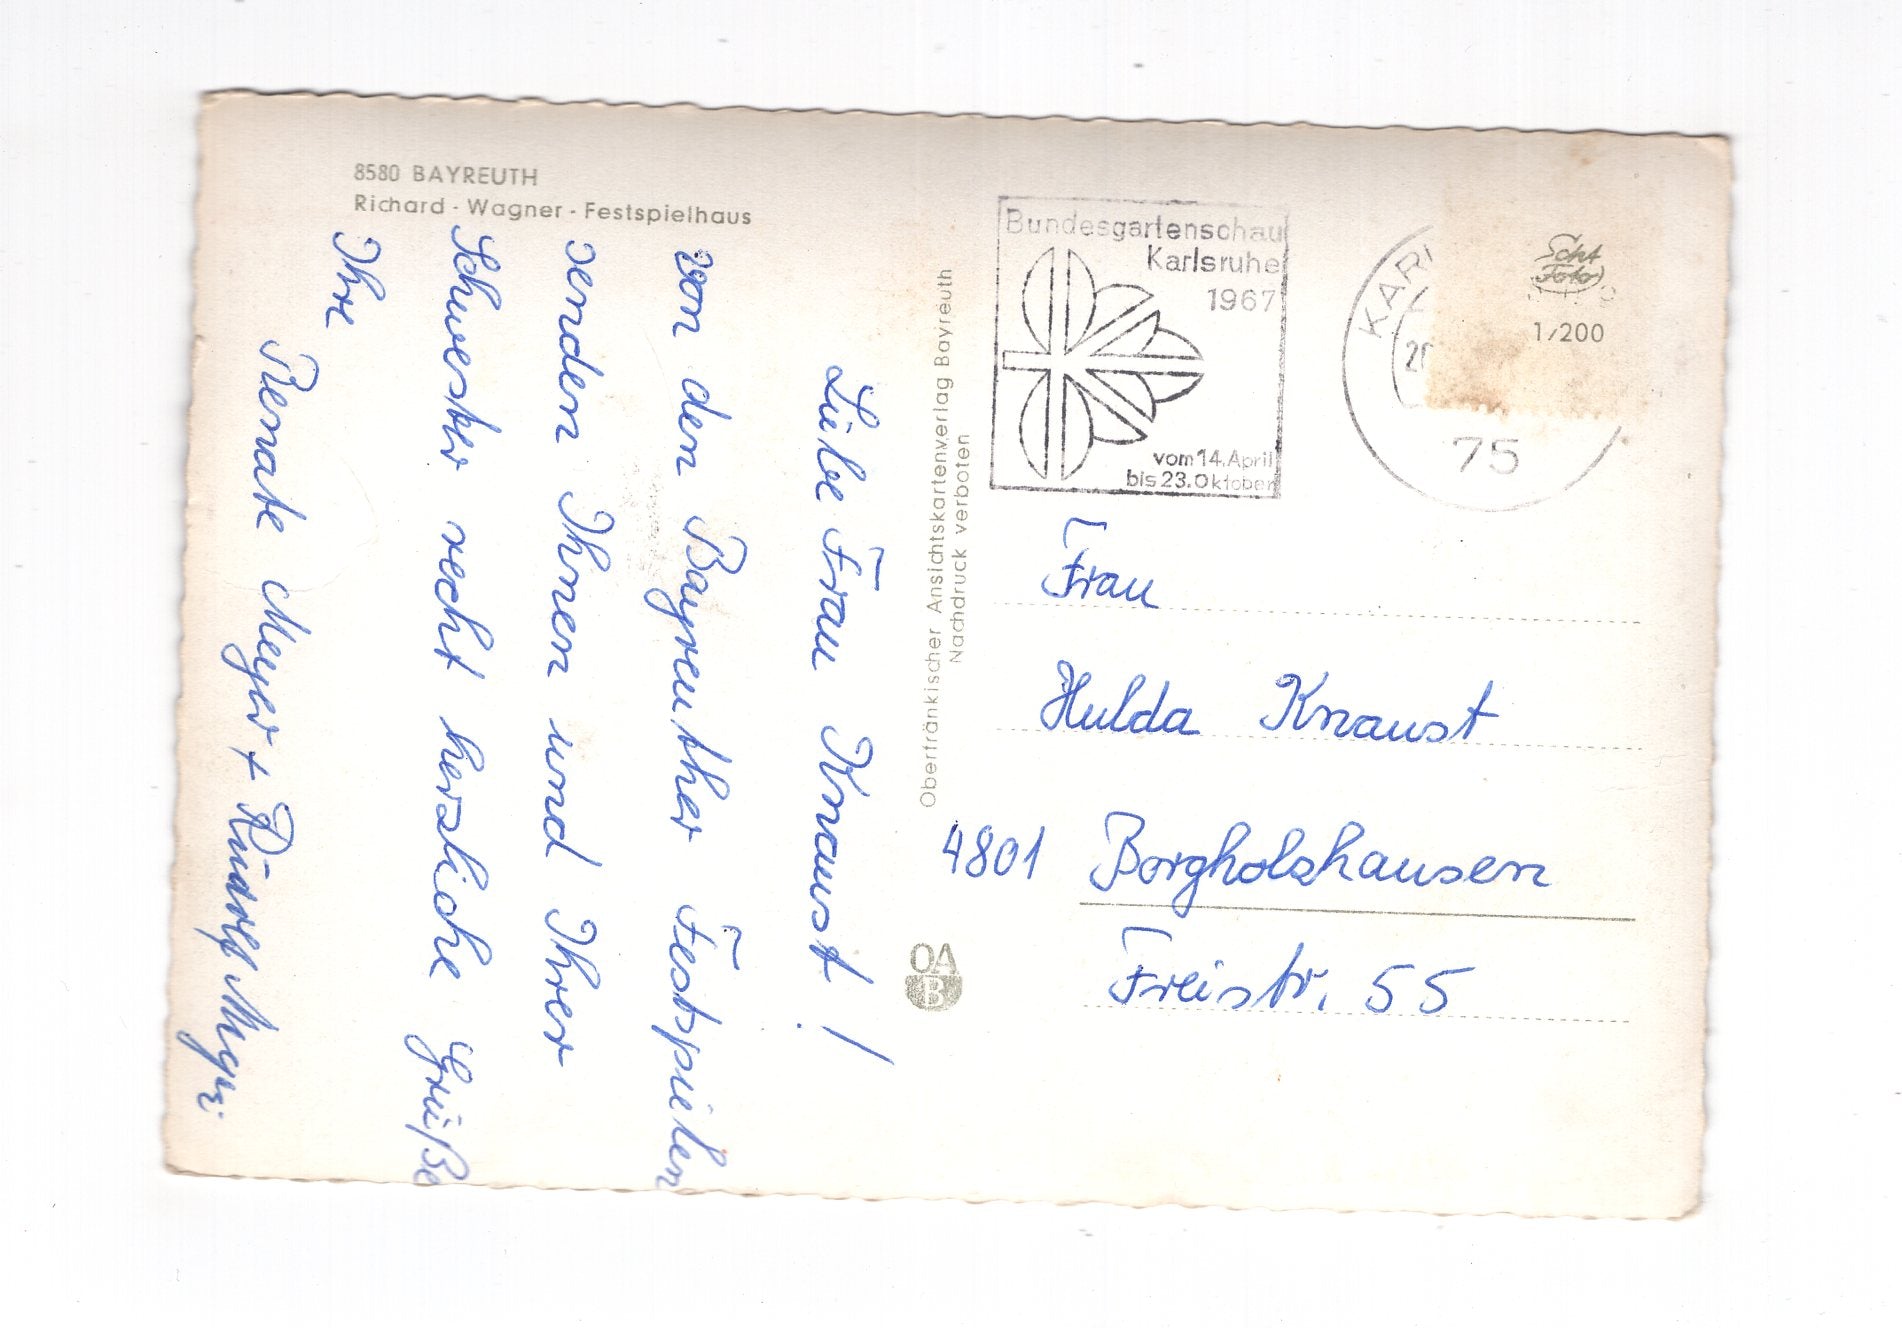 8580 BAYREUTH
Richard - Wagner - Festspielhaus
Liebe Frau Knaust!
von den Bayreuther Festspielen
senden Ihnen und Ihrer
Schwester recht herzliche Grüße
Ihre
Renate Meyer + Rudolf Meyer.
Oberfränkischer Ansichtskartenverlag Bayreuth
Nachdruck verboten
OA
B
Bundesgartenschau
Karlsruhe
1967
vom 14. April
bis 23. Oktober
KARL
75
Echt
Foto
1/200
Frau
Hulda Knaust
4801 Borgholzhausen
Freistr. 55